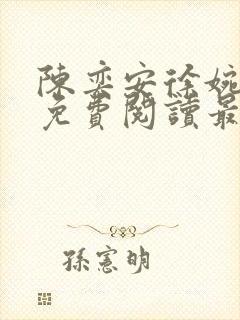 陳奕安徐婉
免費閱讀最
孫憲明